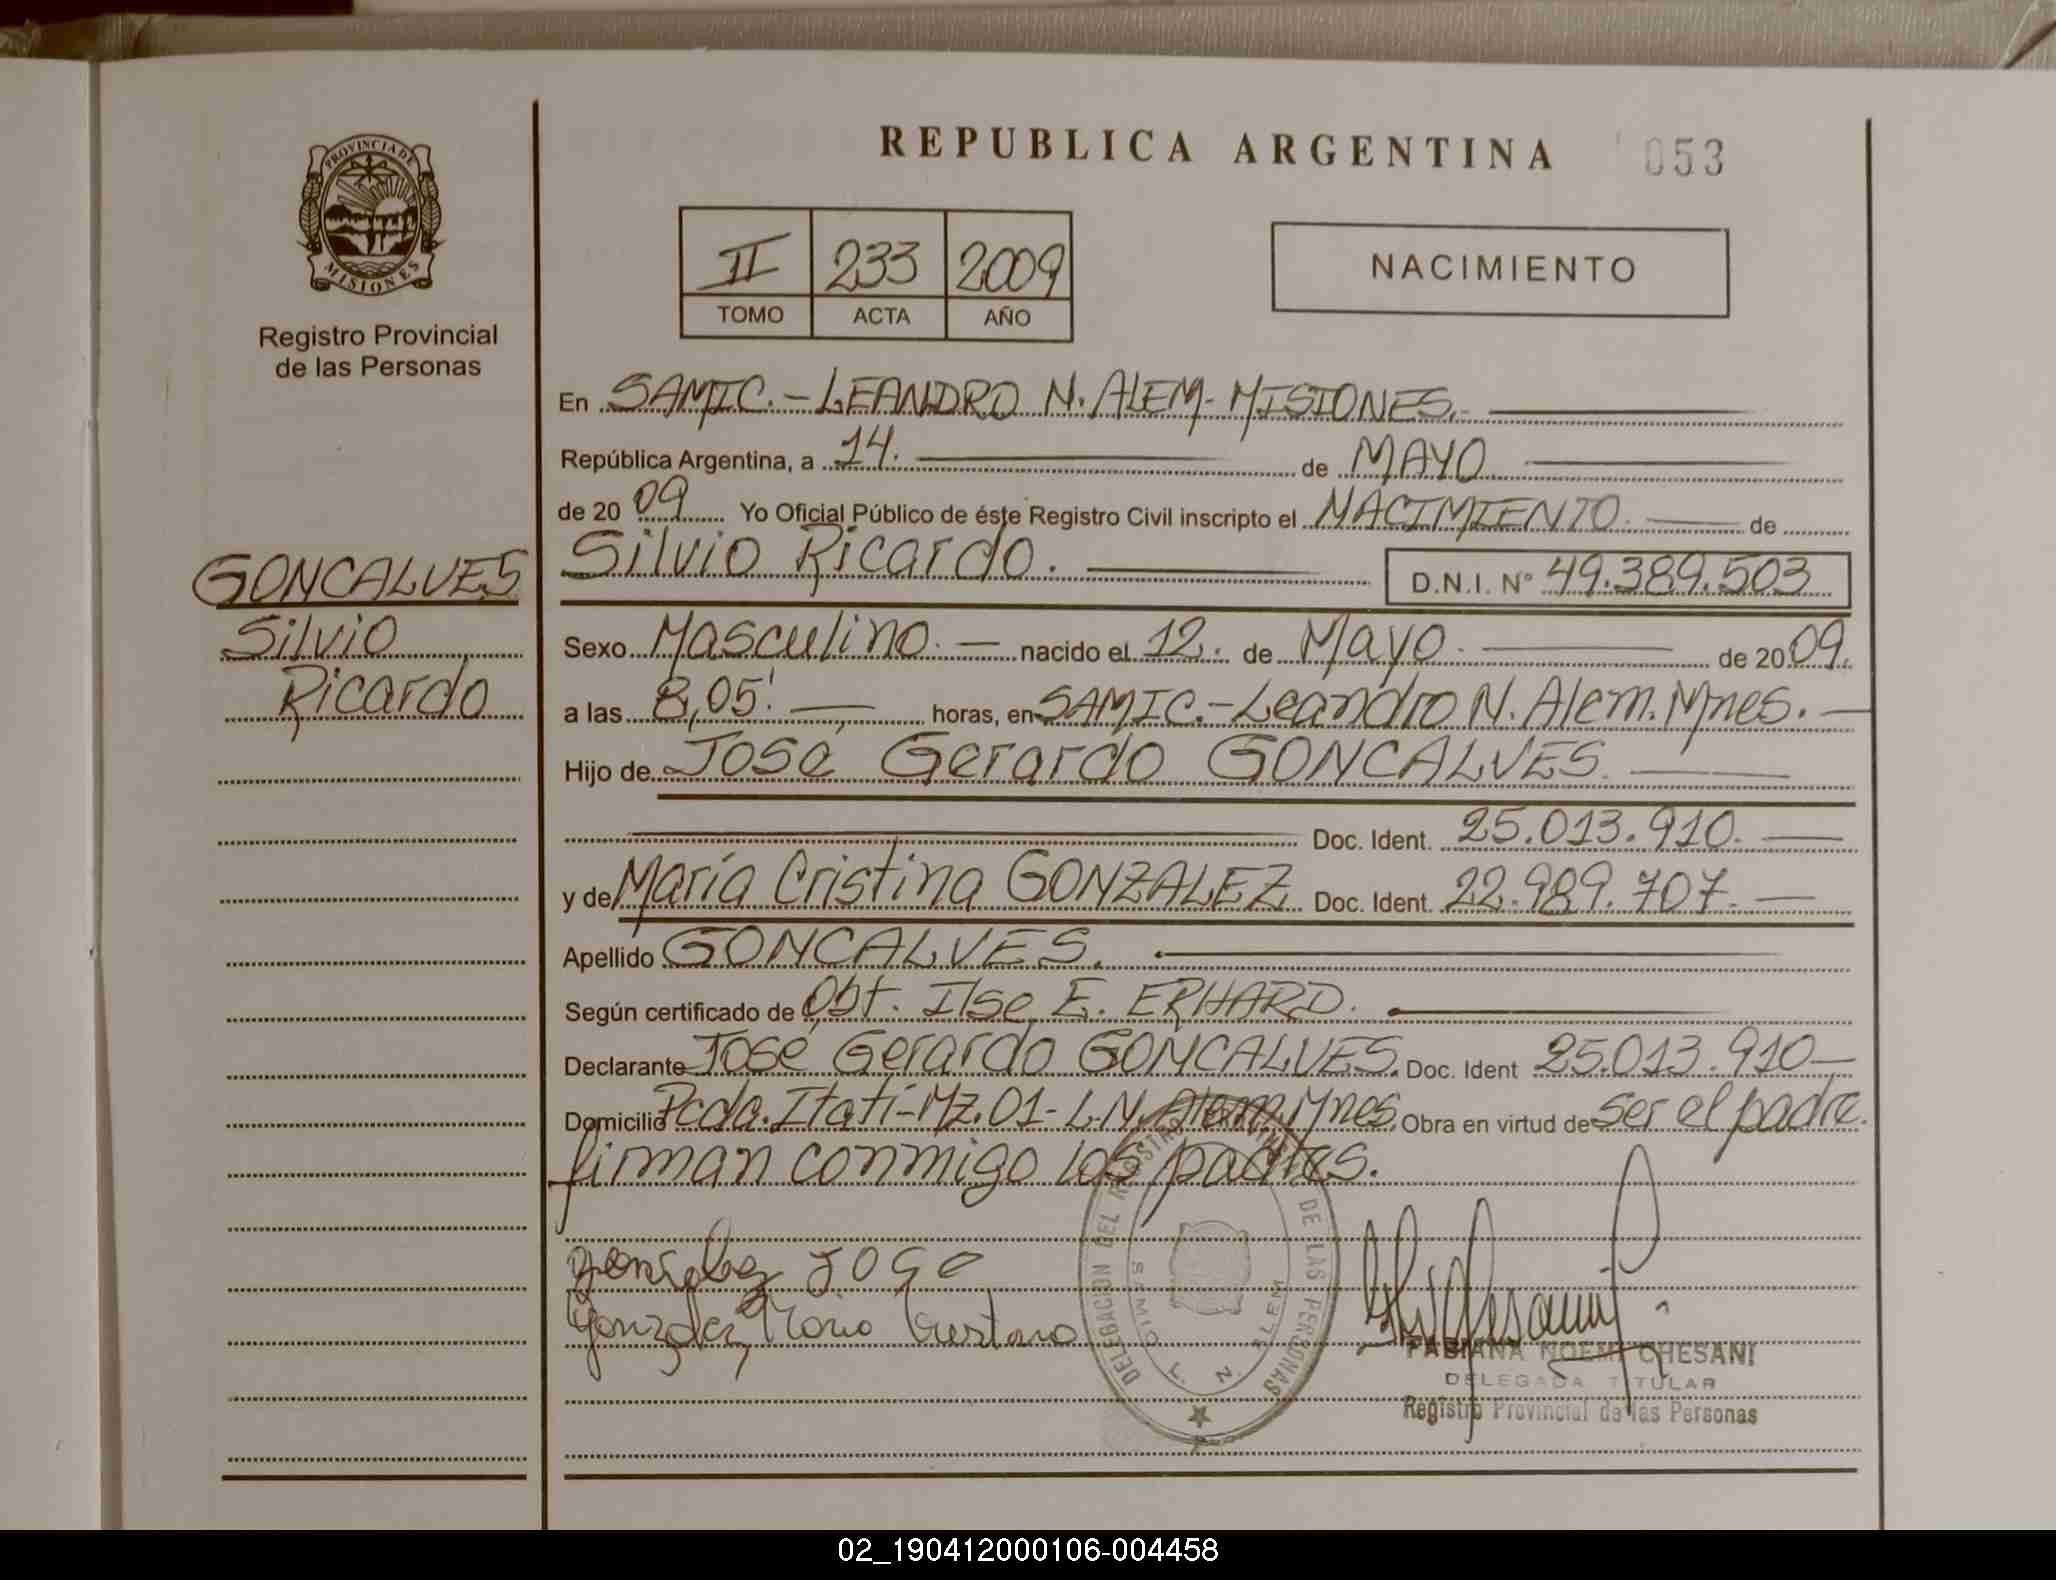 REPUBLICA ARGENTINA 053
PROVINCIA DE MISIONES
Registro Provincial
de las Personas
II 233 2009
TOMO ACTA AÑO
NACIMIENTO
En SAMIC.-LEANDRO N. ALEM-MISIONES.
República Argentina, a 14. de MAYO
de 2009 Yo Oficial Público de éste Registro Civil inscripto el NACIMIENTO de
Silvio Ricardo. D.N.I. Nº 49.389.503
GONCALVES
Silvio
Ricardo
Sexo Masculino. nacido el 12. de Mayo. de 2009.
a las 8,05' horas, en SAMIC.-Leandro N. Alem. Mnes.
Hijo de José Gerardo GONCALVES.
Doc. Ident. 25.013.910.
y de María Cristina GONZALEZ Doc. Ident. 22.989.707.
Apellido GONCALVES.
Según certificado de Obt. Ilse E. ERHARD.
Declarante José Gerardo GONCALVES. Doc. Ident 25.013.910
Domicilio Pcda. Itatí-Mz.01-L.N. Alem. Mnes. Obra en virtud de ser el padre.
firman conmigo los padres.
DELEGACION DEL REGISTRO DE LAS PERSONAS
SAMIC L. N. ALEM
FABIANA NOEMI CHESANI
DELEGADA TITULAR
Registro Provincial de las Personas
02_190412000106-004458